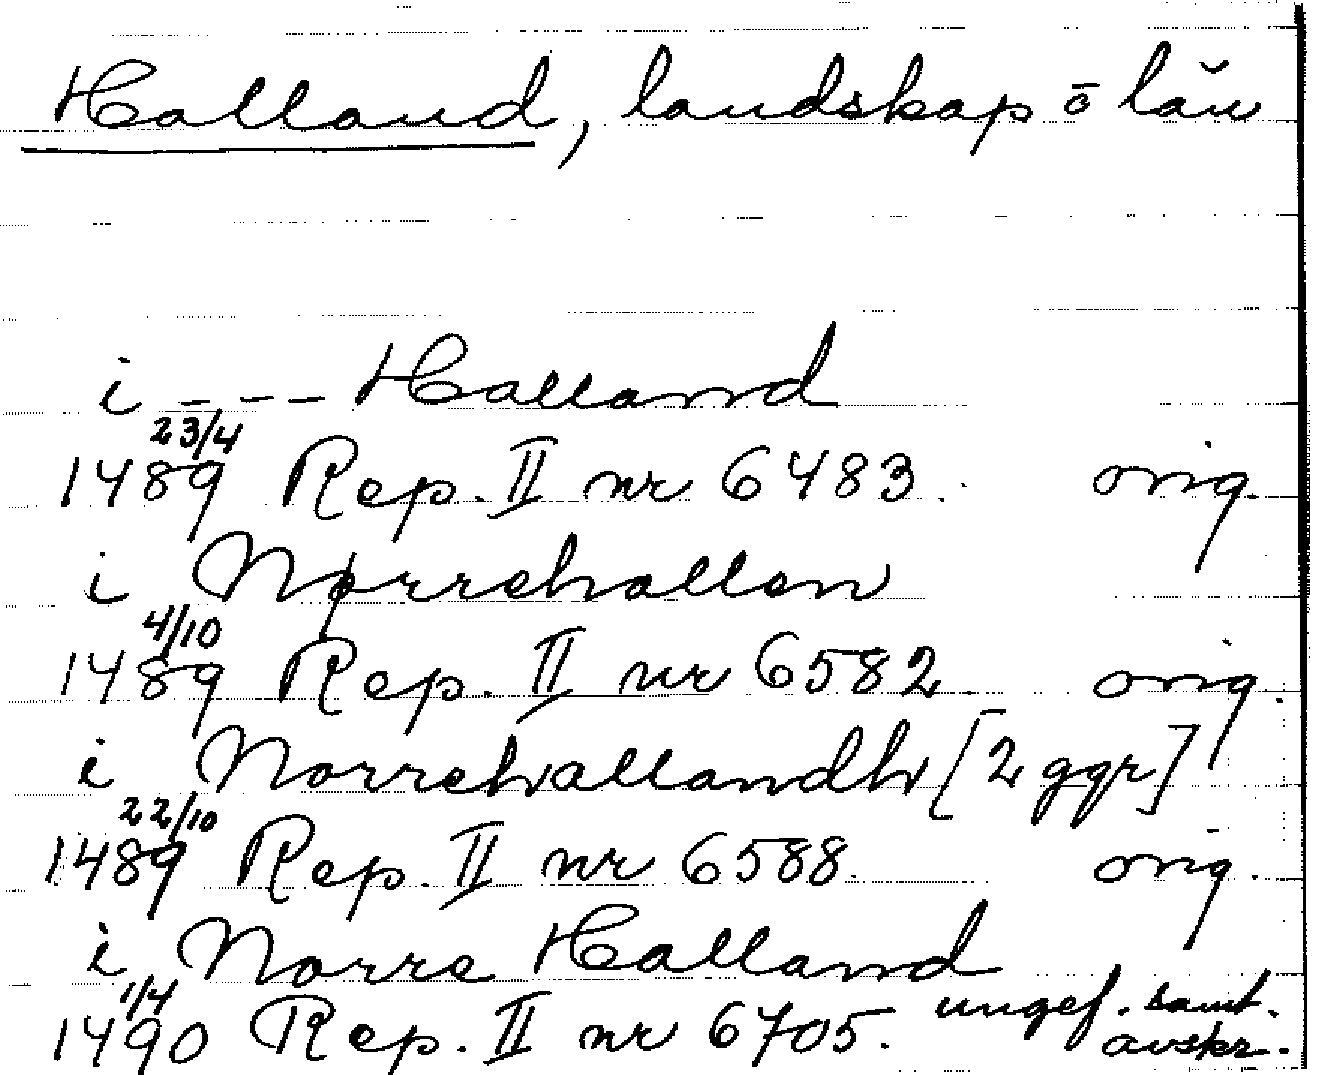 Halland, landskap ō län
i --- Halland
23/4
1489 Rep. II nr 6483. orig.
i Nørrehallen
4/10
1489 Rep. II nr 6582. orig.
i Norrehallandh [2 ggr]
22/10
1489 Rep. II nr 6588. orig.
i Norre Halland
1/4
1490 Rep. II nr 6705. ungef. samt. avskr.